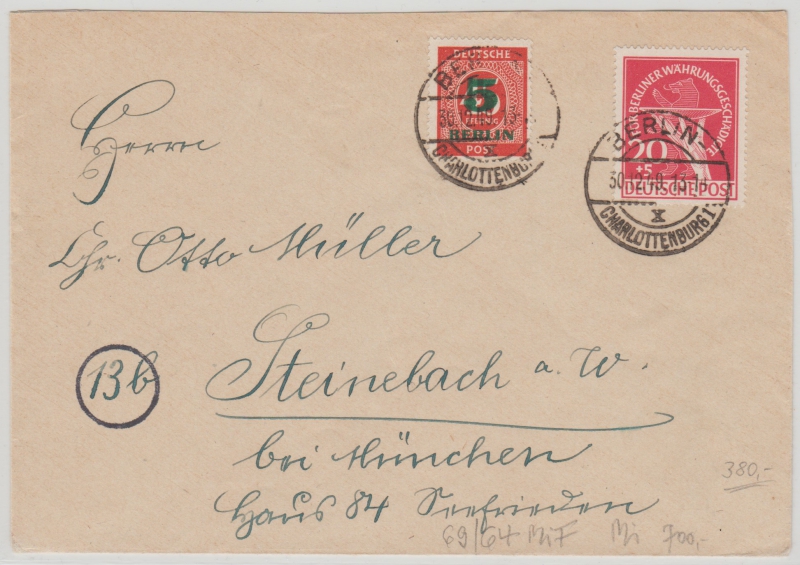 DEUTSCHE
5
PFENNIG
BERLIN
POST
CHARLOTTENBURG
FÜR BERLINER WÄHRUNGSGESCHÄDIGTE
20
+5
DEUTSCHE POST
BERLIN
30.12.49.13-14
X
CHARLOTTENBURG 1
Herrn
Chr. Otto Müller
13b
Steinebach a. W.
bei München
Haus 84 Seefrieden
380,-
69/64 MiF Mi 700,-